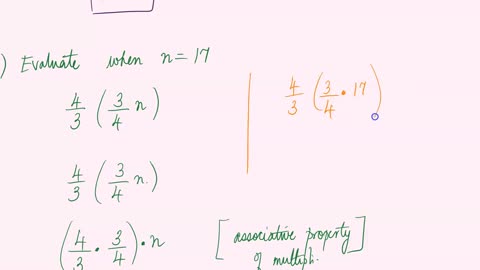 ) Evaluate when n = 17
4/3 (3/4 n)
4/3 (3/4 n.)
(4/3 • 3/4) • n
[associative property of multipli.]
4/3 (3/4 • 17)